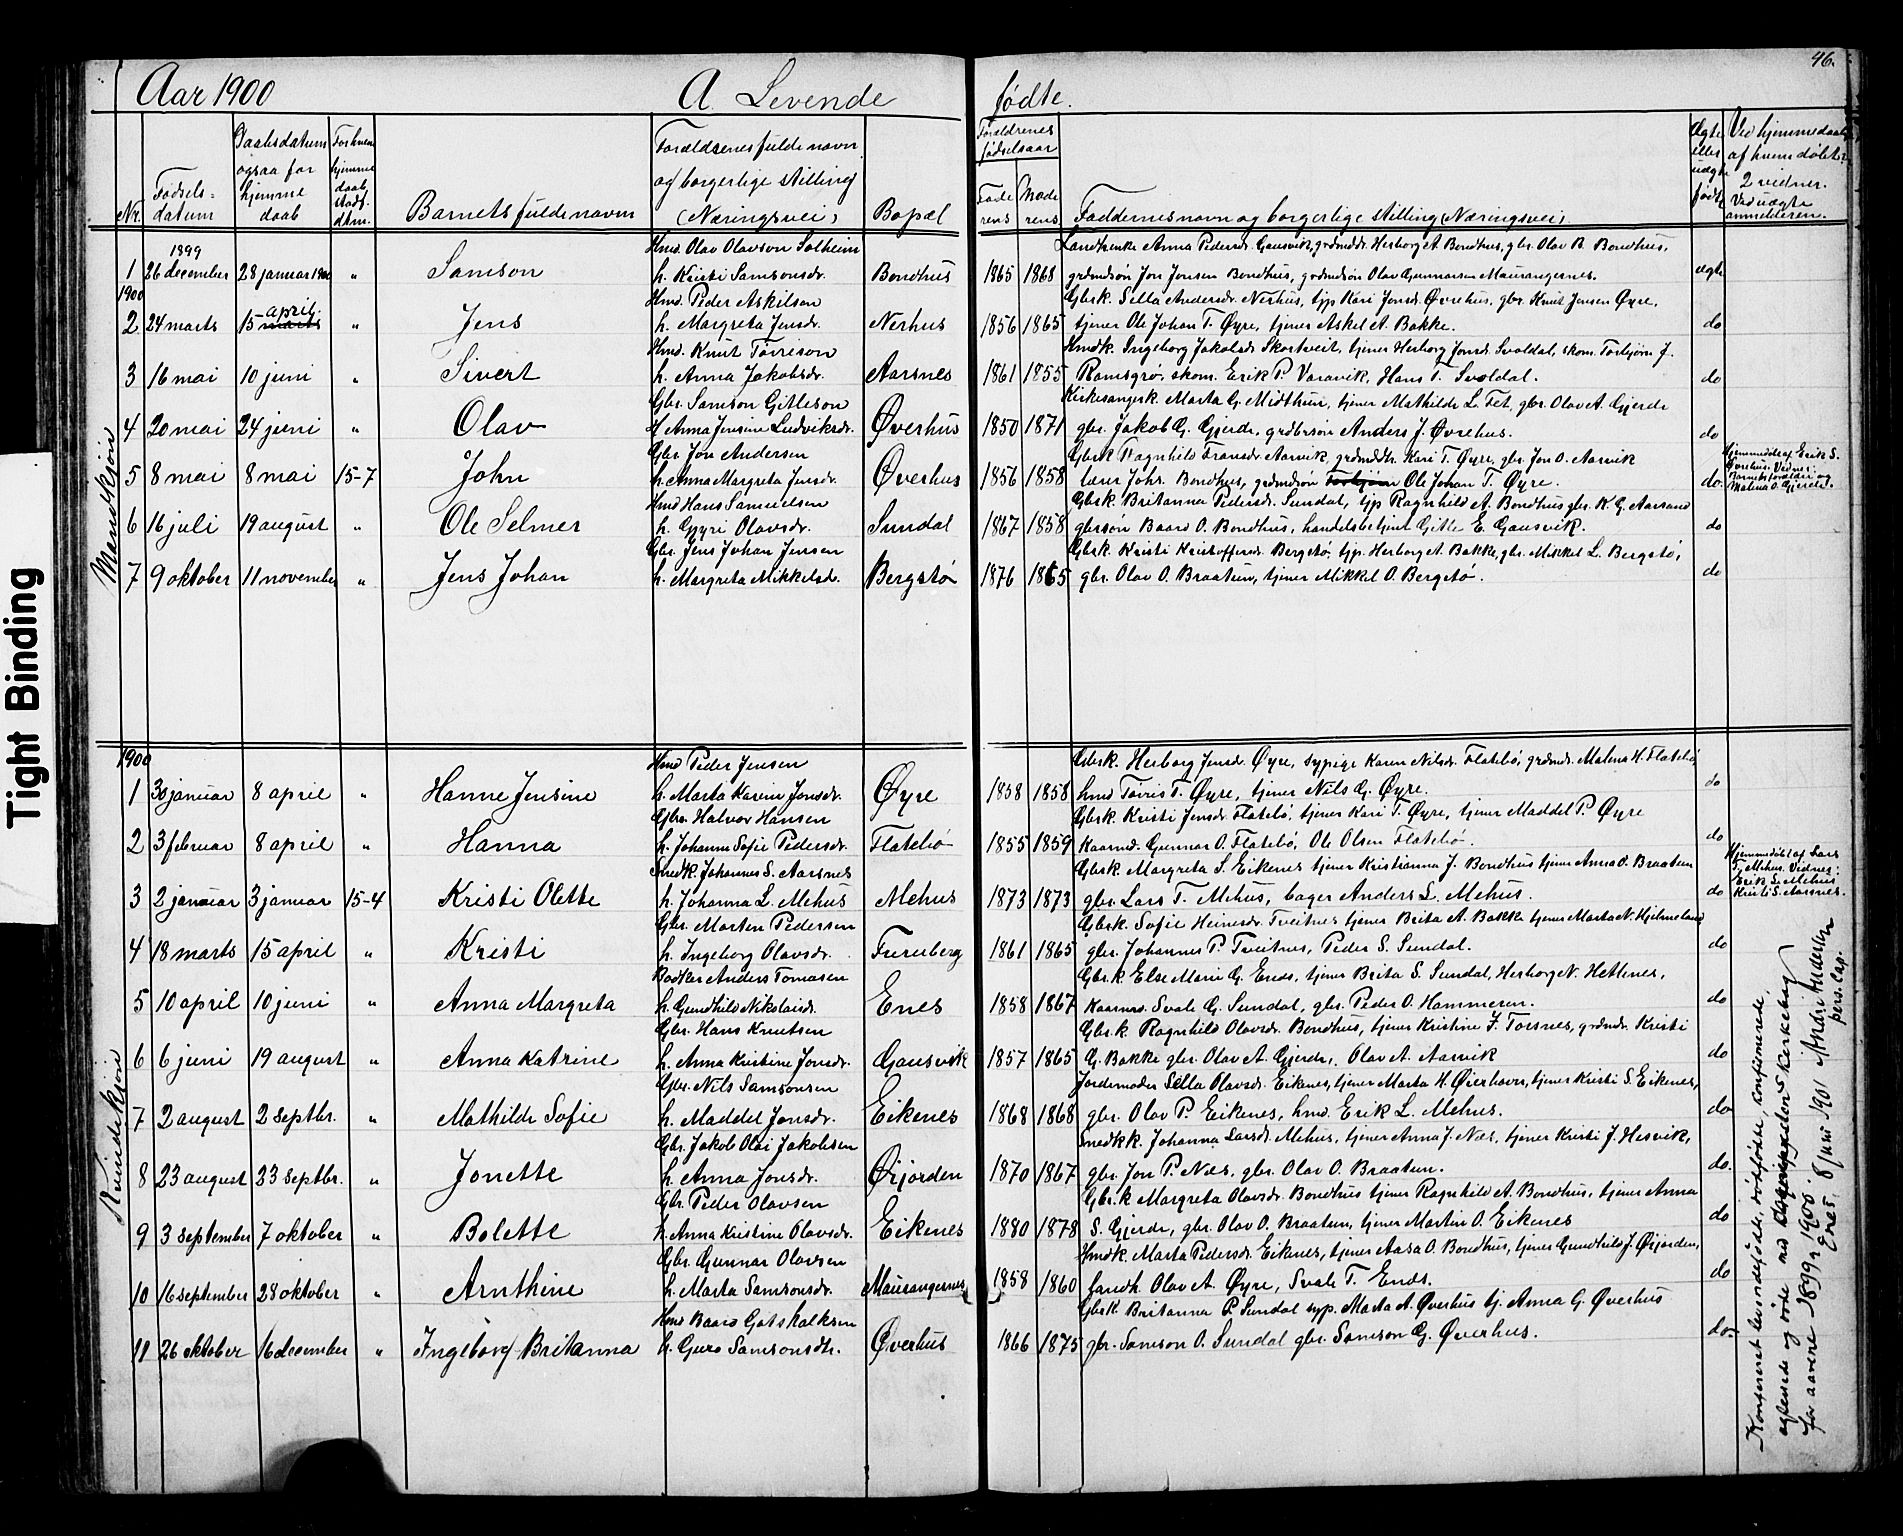 46.
Aar 1900 A. Levende fødte.
Nr. Fødsels-datum Daabsdatum ogsaa for hjemme daab Barnets fulde navn Forældrenes fulde navn og borgerlige stilling (Næringsvei) Bopæl Forældrenes fødselsaar Faderens Moderens Faddernes navn og borgerlige stilling (Næringsvei). Ægte eller uægte født Ved hjemmedaab af hvem døbt: 2 vidner. Ved uægte anmelderen.
Mandkjøn
1899 Hmd. Olav Olavson Solheim Landhenke Anna Pedersdr. Gausvik, grdmdr. Herborg A. Bondhus, gbr. Olav B. Bondhus,
1 26 december 28 januar 1900 " Samson h. Kristi Samsonsdr. Bondhus 1865 1868 grdmdsøn Jon Jonsen Bondhus, grdmdsøn Olav Gunnarsen Maurangernes. ægte
1900 Hmd. Peder Askilsen Gbrk. Sella Andersdr. Nerhus, tjp Kari Jonsd. Øvrehus, gbr. Knut Jensen Øyre,
2 24 marts 15 marts april " Jens h. Margreta Jensdr. Nerhus 1856 1865 tjener Ole Johan T. Øyre, tjener Askel A. Bakke. do
Hmd. Knut Torrison Hmdk. Ingeborg Jakobsdr. Skortveit, tjener Herborg Jonsd. Svoldal, skom. Torbjørn J.
3 16 mai 10 juni " Sivert h. Anna Jakobsdr. Aarsnes 1861 1855 Ramsgrø, skom. Erik P. Varavik, Hans T. Svoldal. do
Gbr. Samson Gitleson Kirkesangerk. Marta G. Midthun, tjener Mathilde L. Tet, gbr. Olav A. Gjerde
4 20 mai 24 juni " Olav h Anna Jensine Ludviksdr. Øverhus 1850 1871 gbr. Jakob G. Gjerde, grdbrsøn Anders J. Øvrehus. do
Gbr. Jon Andersen Gbrk Ragnhild Fransdr. Aarvik, grdmdth. Kari T. Øyre, gbr. Jon O. Aarvik Hjemmedøbt af Erik S. Øvrehus. Vidner:
5 8 mai 8 mai 15-7 John h. Anna Margreta Jensdr. Øverhus 1856 1858 lærer Johs. Bondhus, grdmdsøn Torbjørn Ole Johan T. Øyre. do. Barnets forældre og Malena O. Gjerde.
Hmd Hans Samuelsen Gbrk. Britanna Pedersdr. Sundal, tjp Ragnhild A. Bondhus gbr. K. G. Aarsand
6 16 juli 19 august " Ole Selmer h. Gyyri Olavsdr. Sundal 1867 1858 gbrsøn Baard O. Bondhus, handelsbetjent Gitle E. Gausvik. do
Gbr. Jens Johan Jensen Gbrk. Kristi Kristoffersdr. Bergstø, tjp. Herborg A. Bakke, gbr. Mikkel L. Bergstø,
7 9 oktober 11 november " Jens Johan h. Margreta Mikkelsd. Bergstø 1876 1865 gbr. Olav O. Braatun, tjener Mikkel O. Bergstø. do
Kvindekjøn
1900 Hmd Peder Jensen Gbrk. Herborg Jensd. Øyre, sypige Karen Nilsdr. Flatebø, grdmdr. Malena H. Flatebø
1 30 januar 8 april " Hanne Jensine h. Marta Karine Jonsdr. Øyre 1858 1858 hmd Torris T. Øyre, tjener Nils G. Øyre. do
Gbr. Halvor Hansen Gbrk. Kristi Jensdr. Flatebø, tjener Kari T. Øyre, tjener Maddel P. Øyre
2 3 februar 8 april " Hanna h. Johanne Sofie Pedersdr. Flatebø 1855 1859 Kaarmd. Gunnar O. Flatebø, Ole Olsen Flatebø. do
Snedk. Johannes S. Aarsnes Gbrk. Margreta S. Eikenes tjener Kristianna J. Bondhus tjener Anna O. Braatun Hjemmedøbt af Lars T. Mehus. Vidner:
3 2 januar 3 januar 15-4 Kristi Olette h. Johanna L. Mehus Mehus 1873 1873 gbr. Lars T. Mehus, bager Anders L. Mehus. do Erik L. Mehus Kristi S. Aarsnes.
Gbr. Morten Pedersen Gbrk. Sofie Heinesdr. Tveitnes tjener Brita A. Bakke tjener Marta N. Hjelmeland
4 18 marts 15 april " Kristi h. Ingeborg Olavsdr. Fureberg 1861 1865 gbr. Johannes P. Tveitnes, Peder S. Sundal. do
Bødker Anders Tomasen Gbr.k. Else Marie G. Enes, tjener Brita S. Sundal, Herborg N. Hettenes,
5 10 april 10 juni " Anna Margreta h. Gundhild Nikolaisd. Enes 1858 1867 Kaarmd. Svale G. Sundal, gbr. Peder O. Hammeren. do
Gbr. Hans Knutsen Gbr.k. Ragnhild Olavsdr. Bondhus, tjener Kristine J. Torsnes, grdmdr. Kristi
6 6 juni 19 august " Anna Katrine h. Anna Kristine Jonsdr. Gausvik 1857 1865 G. Bakke gbr. Olav A. Gjerde, Olav A. Aarvik do
Gbr. Nils Samsonsen Jordemoder Sella Olavsd. Eikenes, tjener Marta H. Øierhavn, tjener Kristi S. Eikenes,
7 2 august 2 septbr. " Mathilde Sofie h. Maddel Jonsdr. Eikenes 1868 1868 gbr. Olav P. Eikenes, hmd. Erik L. Mehus. do
Gbr. Jakob Olai Jakobsen Snedkk. Johanna Larsdr. Mehus, tjener Anna J. Næs, tjener Kristi J. Hesvik,
8 23 august 23 septbr. " Jonette h. Anna Jonsdr. Øijorden 1870 1867 gbr. Jon P. Næs, gbr. Olav O. Braatun. do.
Gbr. Peder Olavsen Gbr.k Margreta Olavsdr. Bondhus tjener Ragnhild A. Bondhus, tjener Anna
9 3 september 7 oktober " Bolette h. Anna Kristine Olavsdr. Eikenes 1880 1878 S. Gjerde, gbr. Olav O. Braatun, tjener Martin O. Eikenes do
Gbr. Gunnar Olavsen Hmdk. Marta Pedersdr. Eikenes, tjener Aasa O. Bondhus, tjener Gundhild J. Øijorden,
10 16 september 28 oktober " Arnthine h. Marta Samsonsdr. Maurangernes 1858 1860 landh. Olav A. Øyre, Svale T. Enes. do
Hmd Baard Gotskalksen Gbrk. Britanna P. Sundal syp. Marta A. Øverhus tj. Anna G. Øverhus
11 26 oktober 16 december " Ingeborg Britanna h. Guro Samsonsdtr. Øverhus 1866 1875 gbr. Samson O. Sundal gbr. Samson G. Øverhus. do
Konfereret levendefødte, dødfødte, konfirmerede,
ægteviede og døde med kirkebog
for aarene 1899 & 1900.
Enes. 8 juni 1901 Andr. Andersen
pers. cap.
Tight Binding